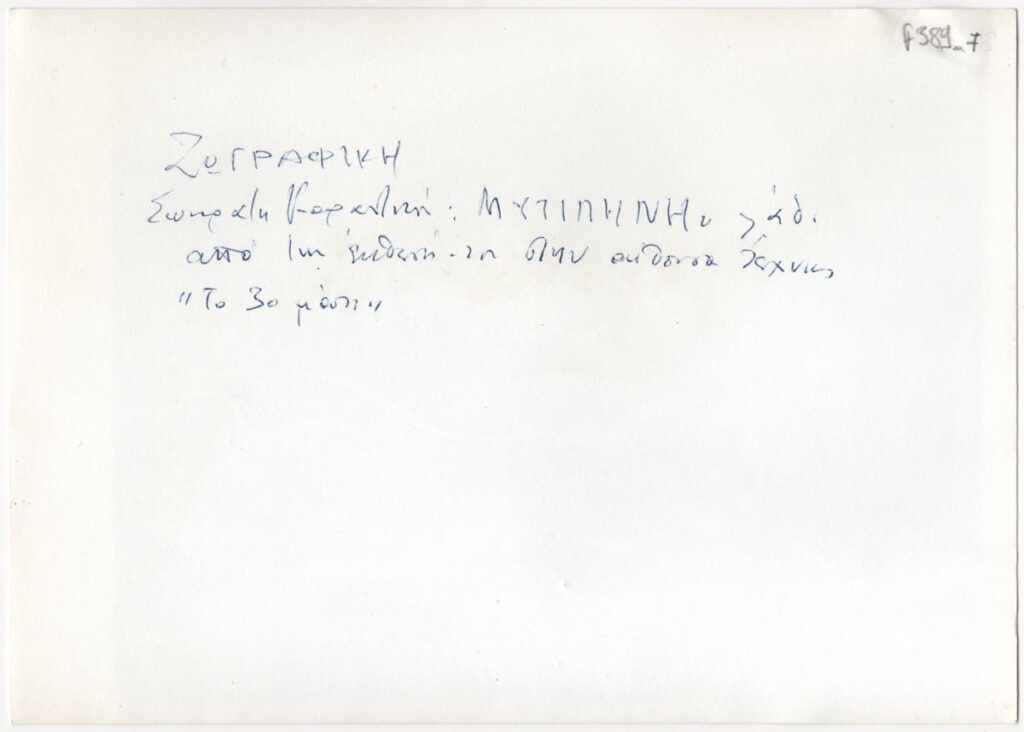 F389_78
ΖΩΓΡΑΦΙΚΗ
Σωκράτη Καραντινή: ΜΥΤΙΛΗΝΗ, λάδι
από την έκθεσή του στην αίθουσα τέχνης
"Το 3ο μάτι"